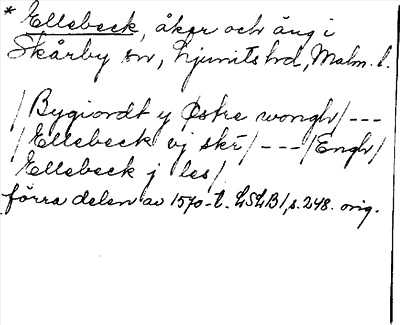 * Ellebeck, åker och äng i
Skårby sn, Ljunits hd, Malm. l.
/Bygiordt y Østre wongh/---
/Ellebeck vj skr/---/Engh/
Ellebeck j les/.
förra delen av 1570-t. LSLB1, s. 248. orig.